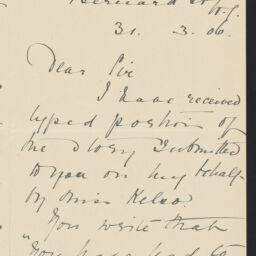 Bernard St W.C.
31. 3. 06.
Dear Sir
I have received
typed portion of
the story submitted
to you on my behalf
by Miss Kelso.
You write that
"You have had to